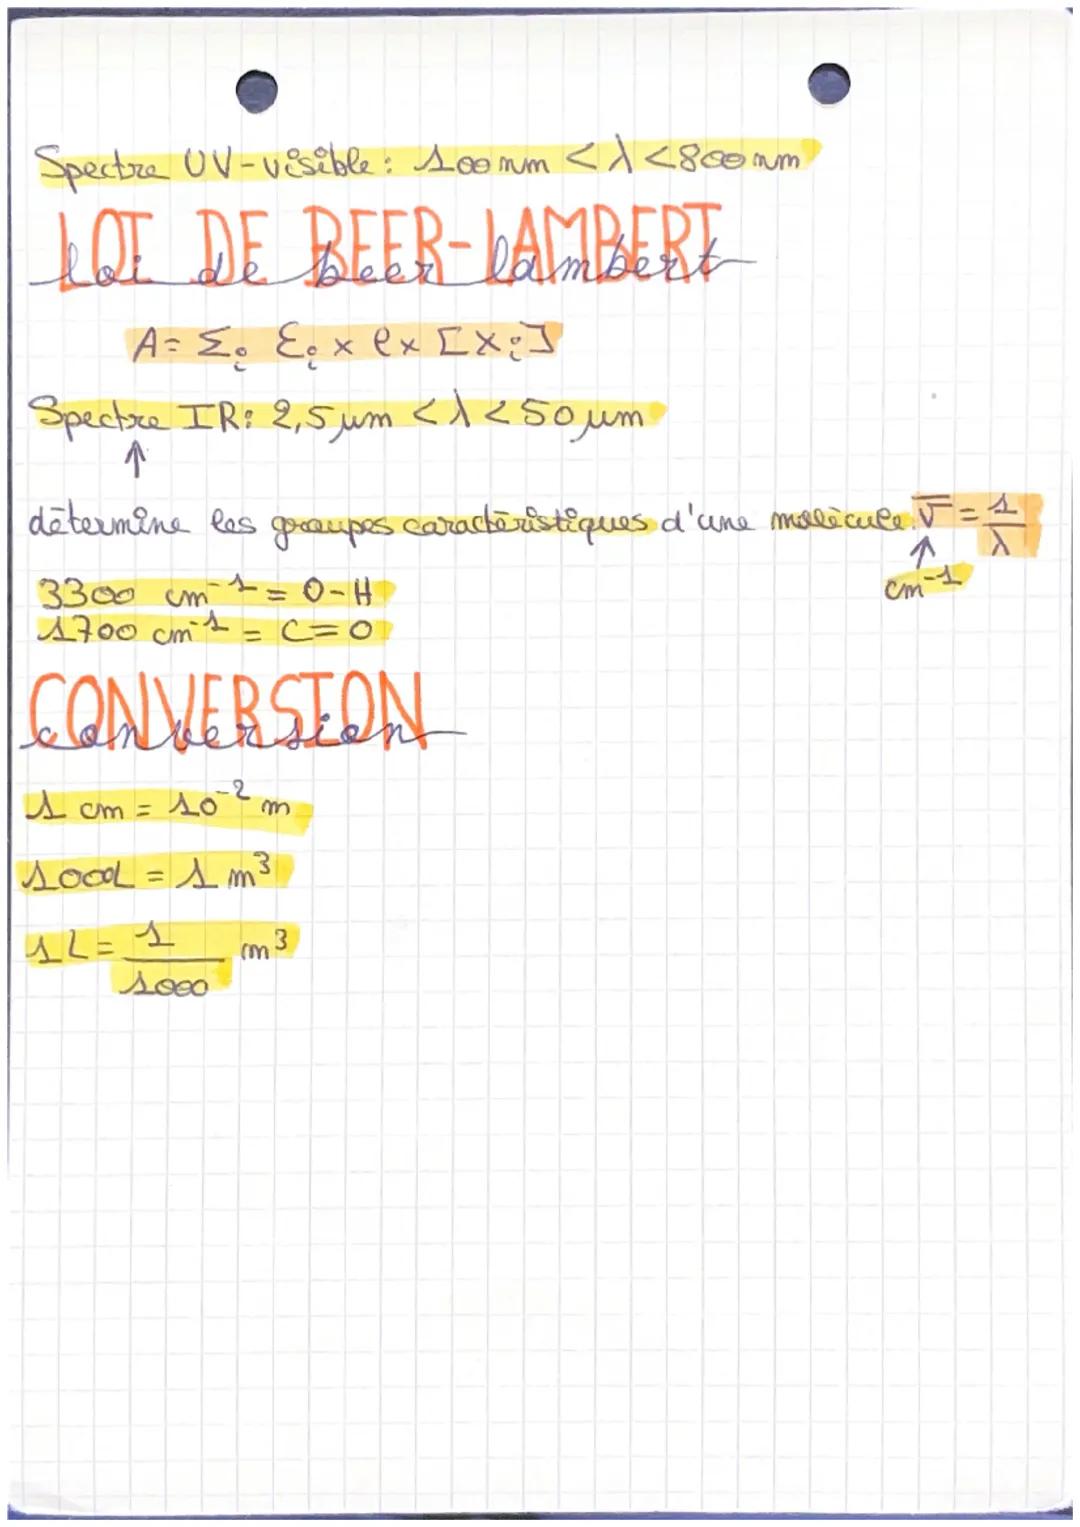 Spectre UV-visible : 100 nm < λ < 800 nm
LOI DE BEER-LAMBERT
loi de beer lambert
A = Σi Ɛi × l × [Xi]
Spectre IR : 2,5 µm < λ < 50 µm
↑
détermine les groupes caractéristiques d'une molécule. ν̅ = 1/λ
↑
cm⁻¹
3300 cm⁻¹ = O-H
1700 cm⁻¹ = C=O
CONVERSION
conversion
1 cm = 10⁻² m
1000L = 1 m³
1 L = 1/1000 m³